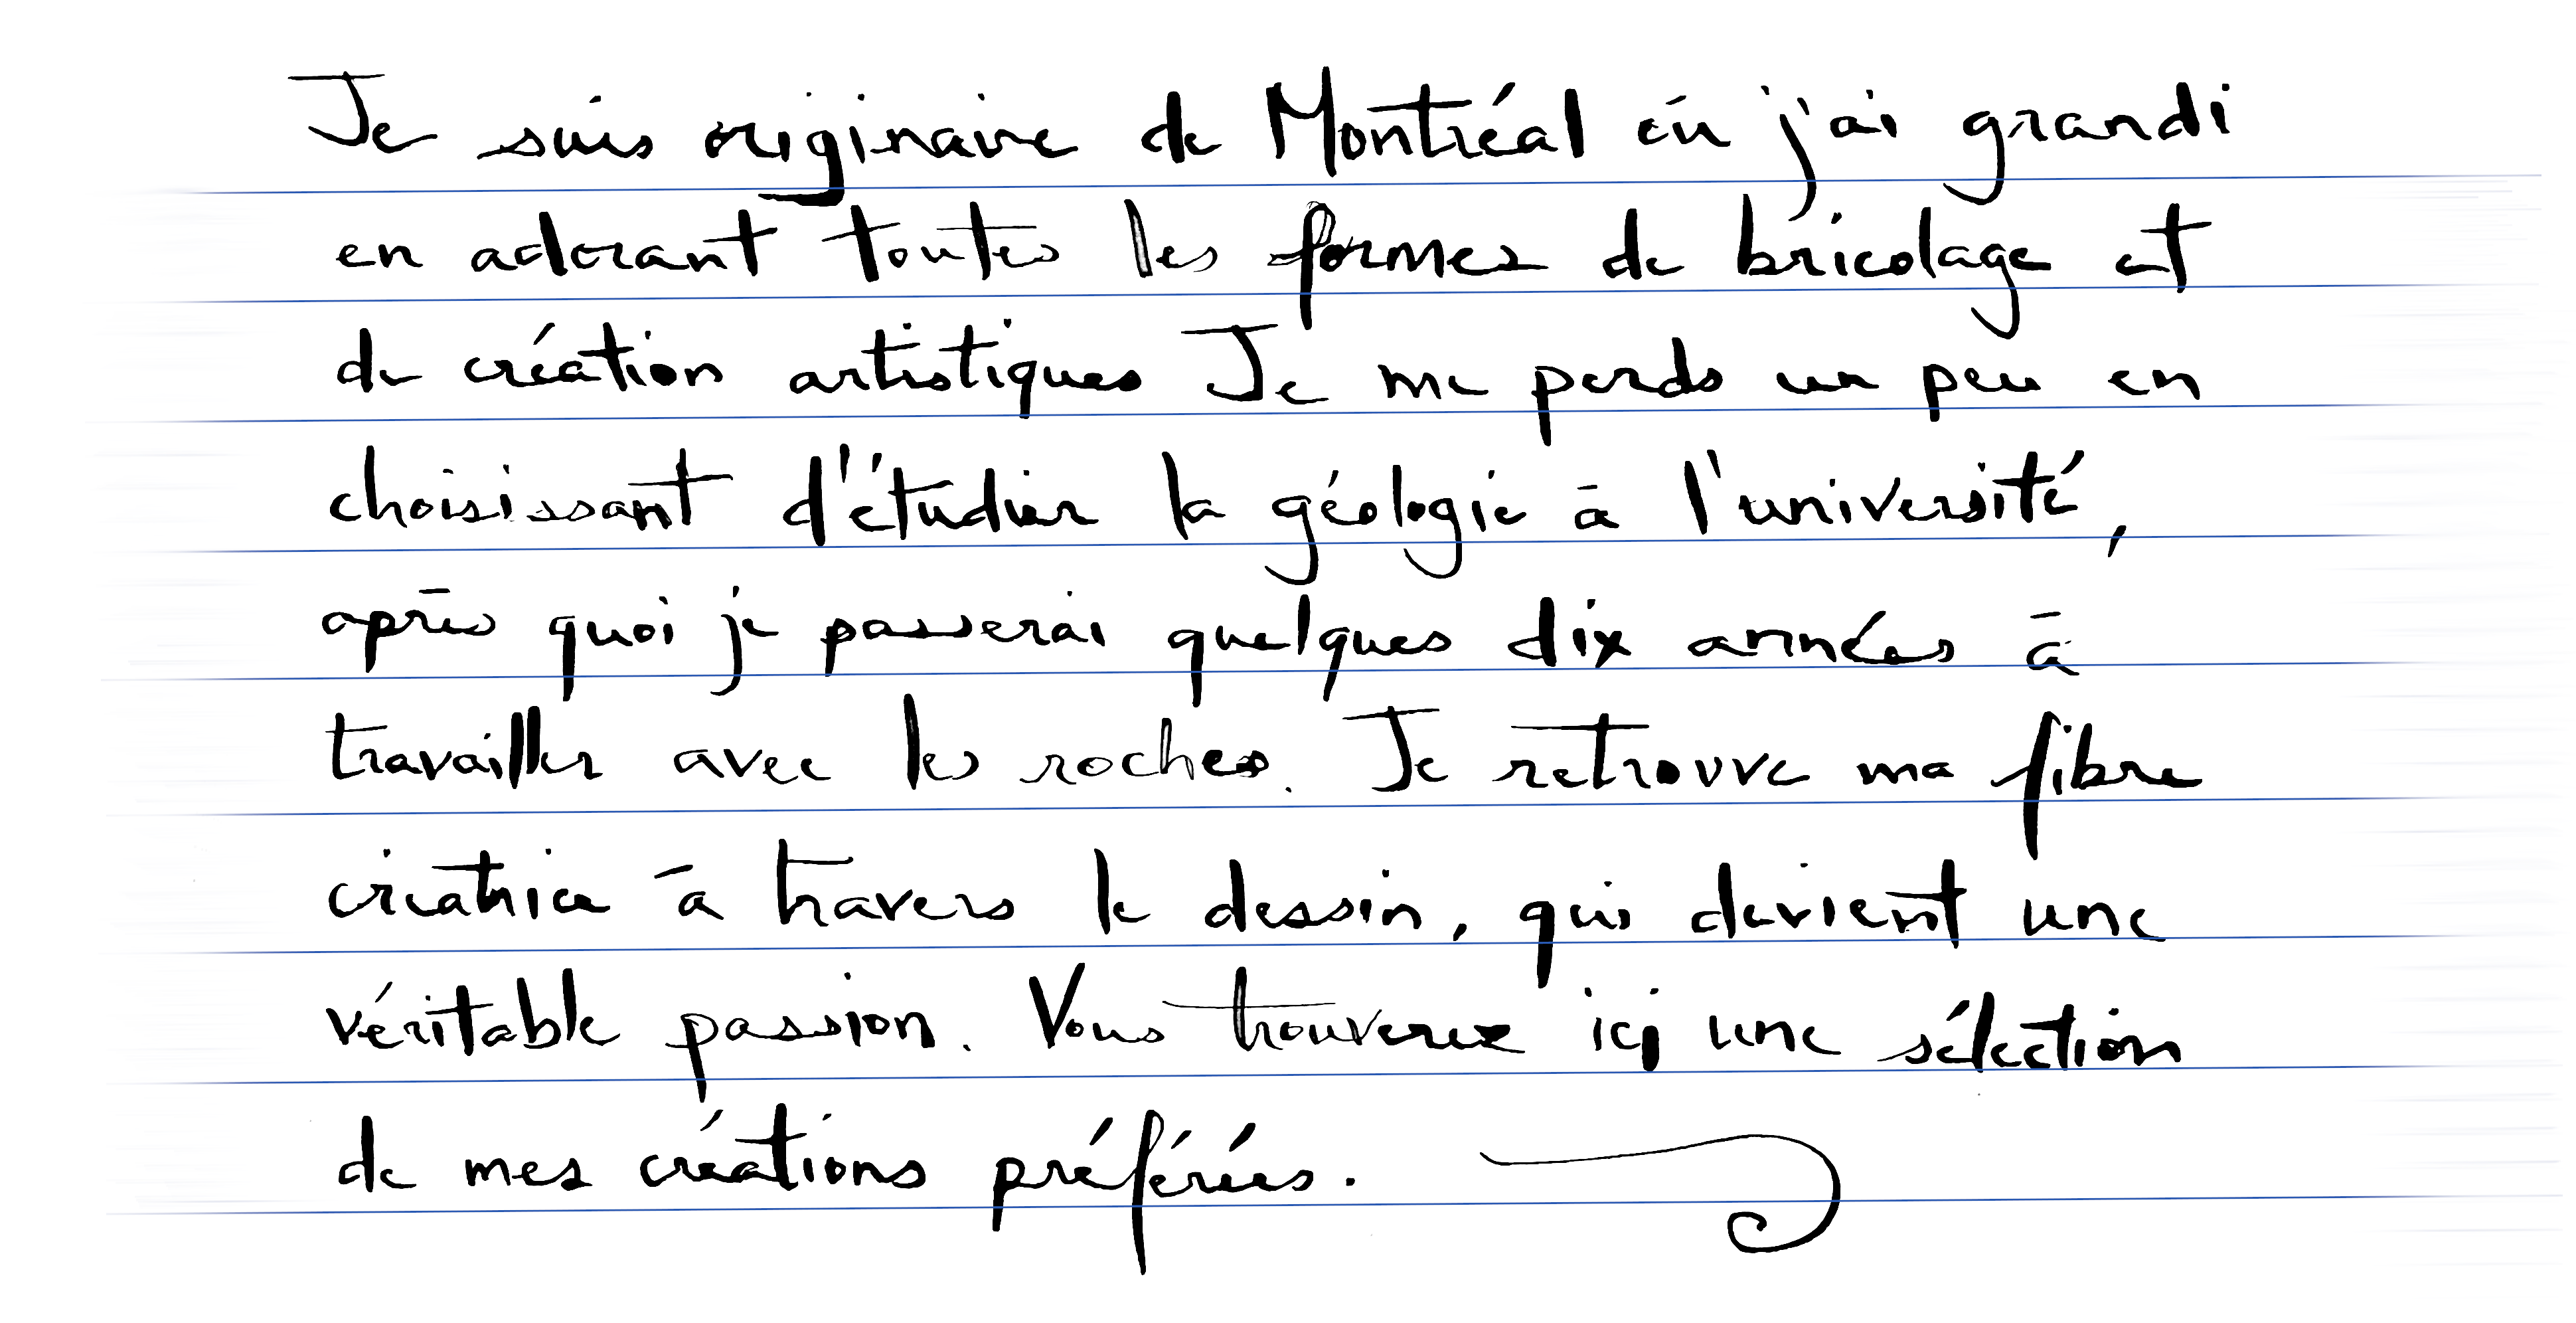 Je suis originaire de Montréal où j'ai grandi
en adorant toutes les formes de bricolage et
de création artistiques Je me perds un peu en
choisissant d'étudier la géologie à l'université,
après quoi je passerai quelques dix années à
travailler avec les roches. Je retrouve ma fibre
créatrice à travers le dessin, qui devient une
véritable passion. Vous trouverez ici une sélection
de mes créations préférées.